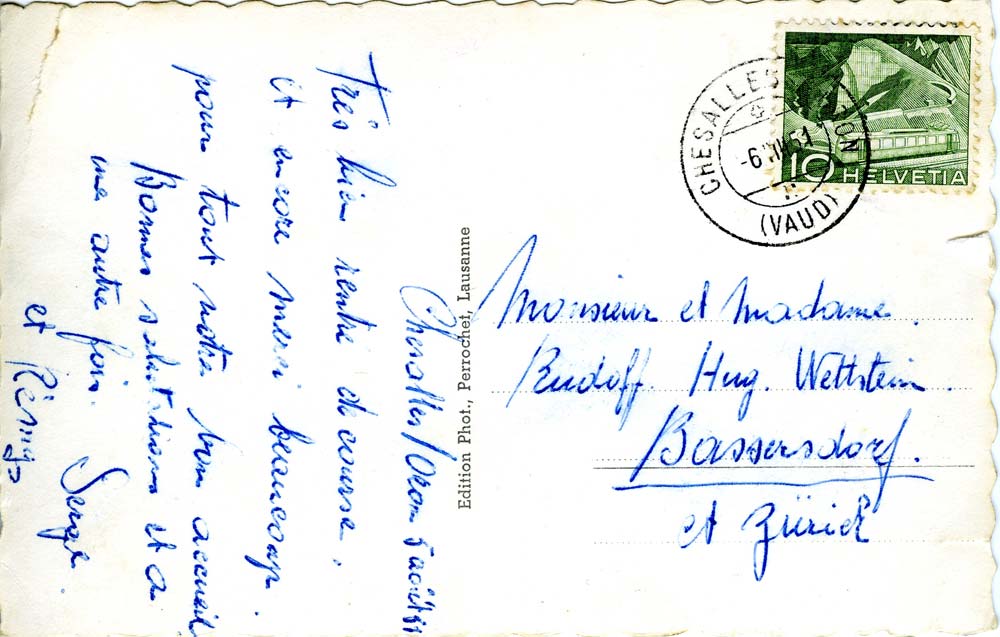 Chesalles/Oron 5 août 51
Très bien rentré de course,
et encore merci beaucoup
pour tout votre bon accueil
Bonnes salutations et a
une autre fois. Serge
et Rémy
Edition Phot., Perrochet, Lausanne
CHESALLES ORON
-6.VIII.51
(VAUD)
10 HELVETIA
Monsieur et Madame.
Rudolf. Hug. Wettstein.
Bassersdorf.
et Zürich